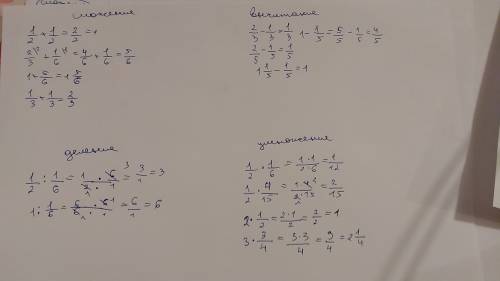 сложение
1/2 + 1/2 = 2/2 = 1
2/3 + 1/6 = 4/6 + 1/6 = 5/6
1 + 5/6 = 1 5/6
1/3 + 1/3 = 2/3
вычитание
2/3 - 1/3 = 1/3 1 - 1/5 = 5/5 - 1/5 = 4/5
2/5 - 1/5 = 1/5
1 1/5 - 1/5 = 1
деление
1/2 : 1/6 = 1 · 6 / 2 · 1 = 3/1 = 3
умножение
1/2 · 1/6 = 1·1 / 2·6 = 1/12
1/2 · 4/15 = 1·4 / 2·15 = 2/15
2 · 1/2 = 2·1 / 2 = 2/2 = 1
3 · 3/4 = 3·3 / 4 = 9/4 = 2 1/4